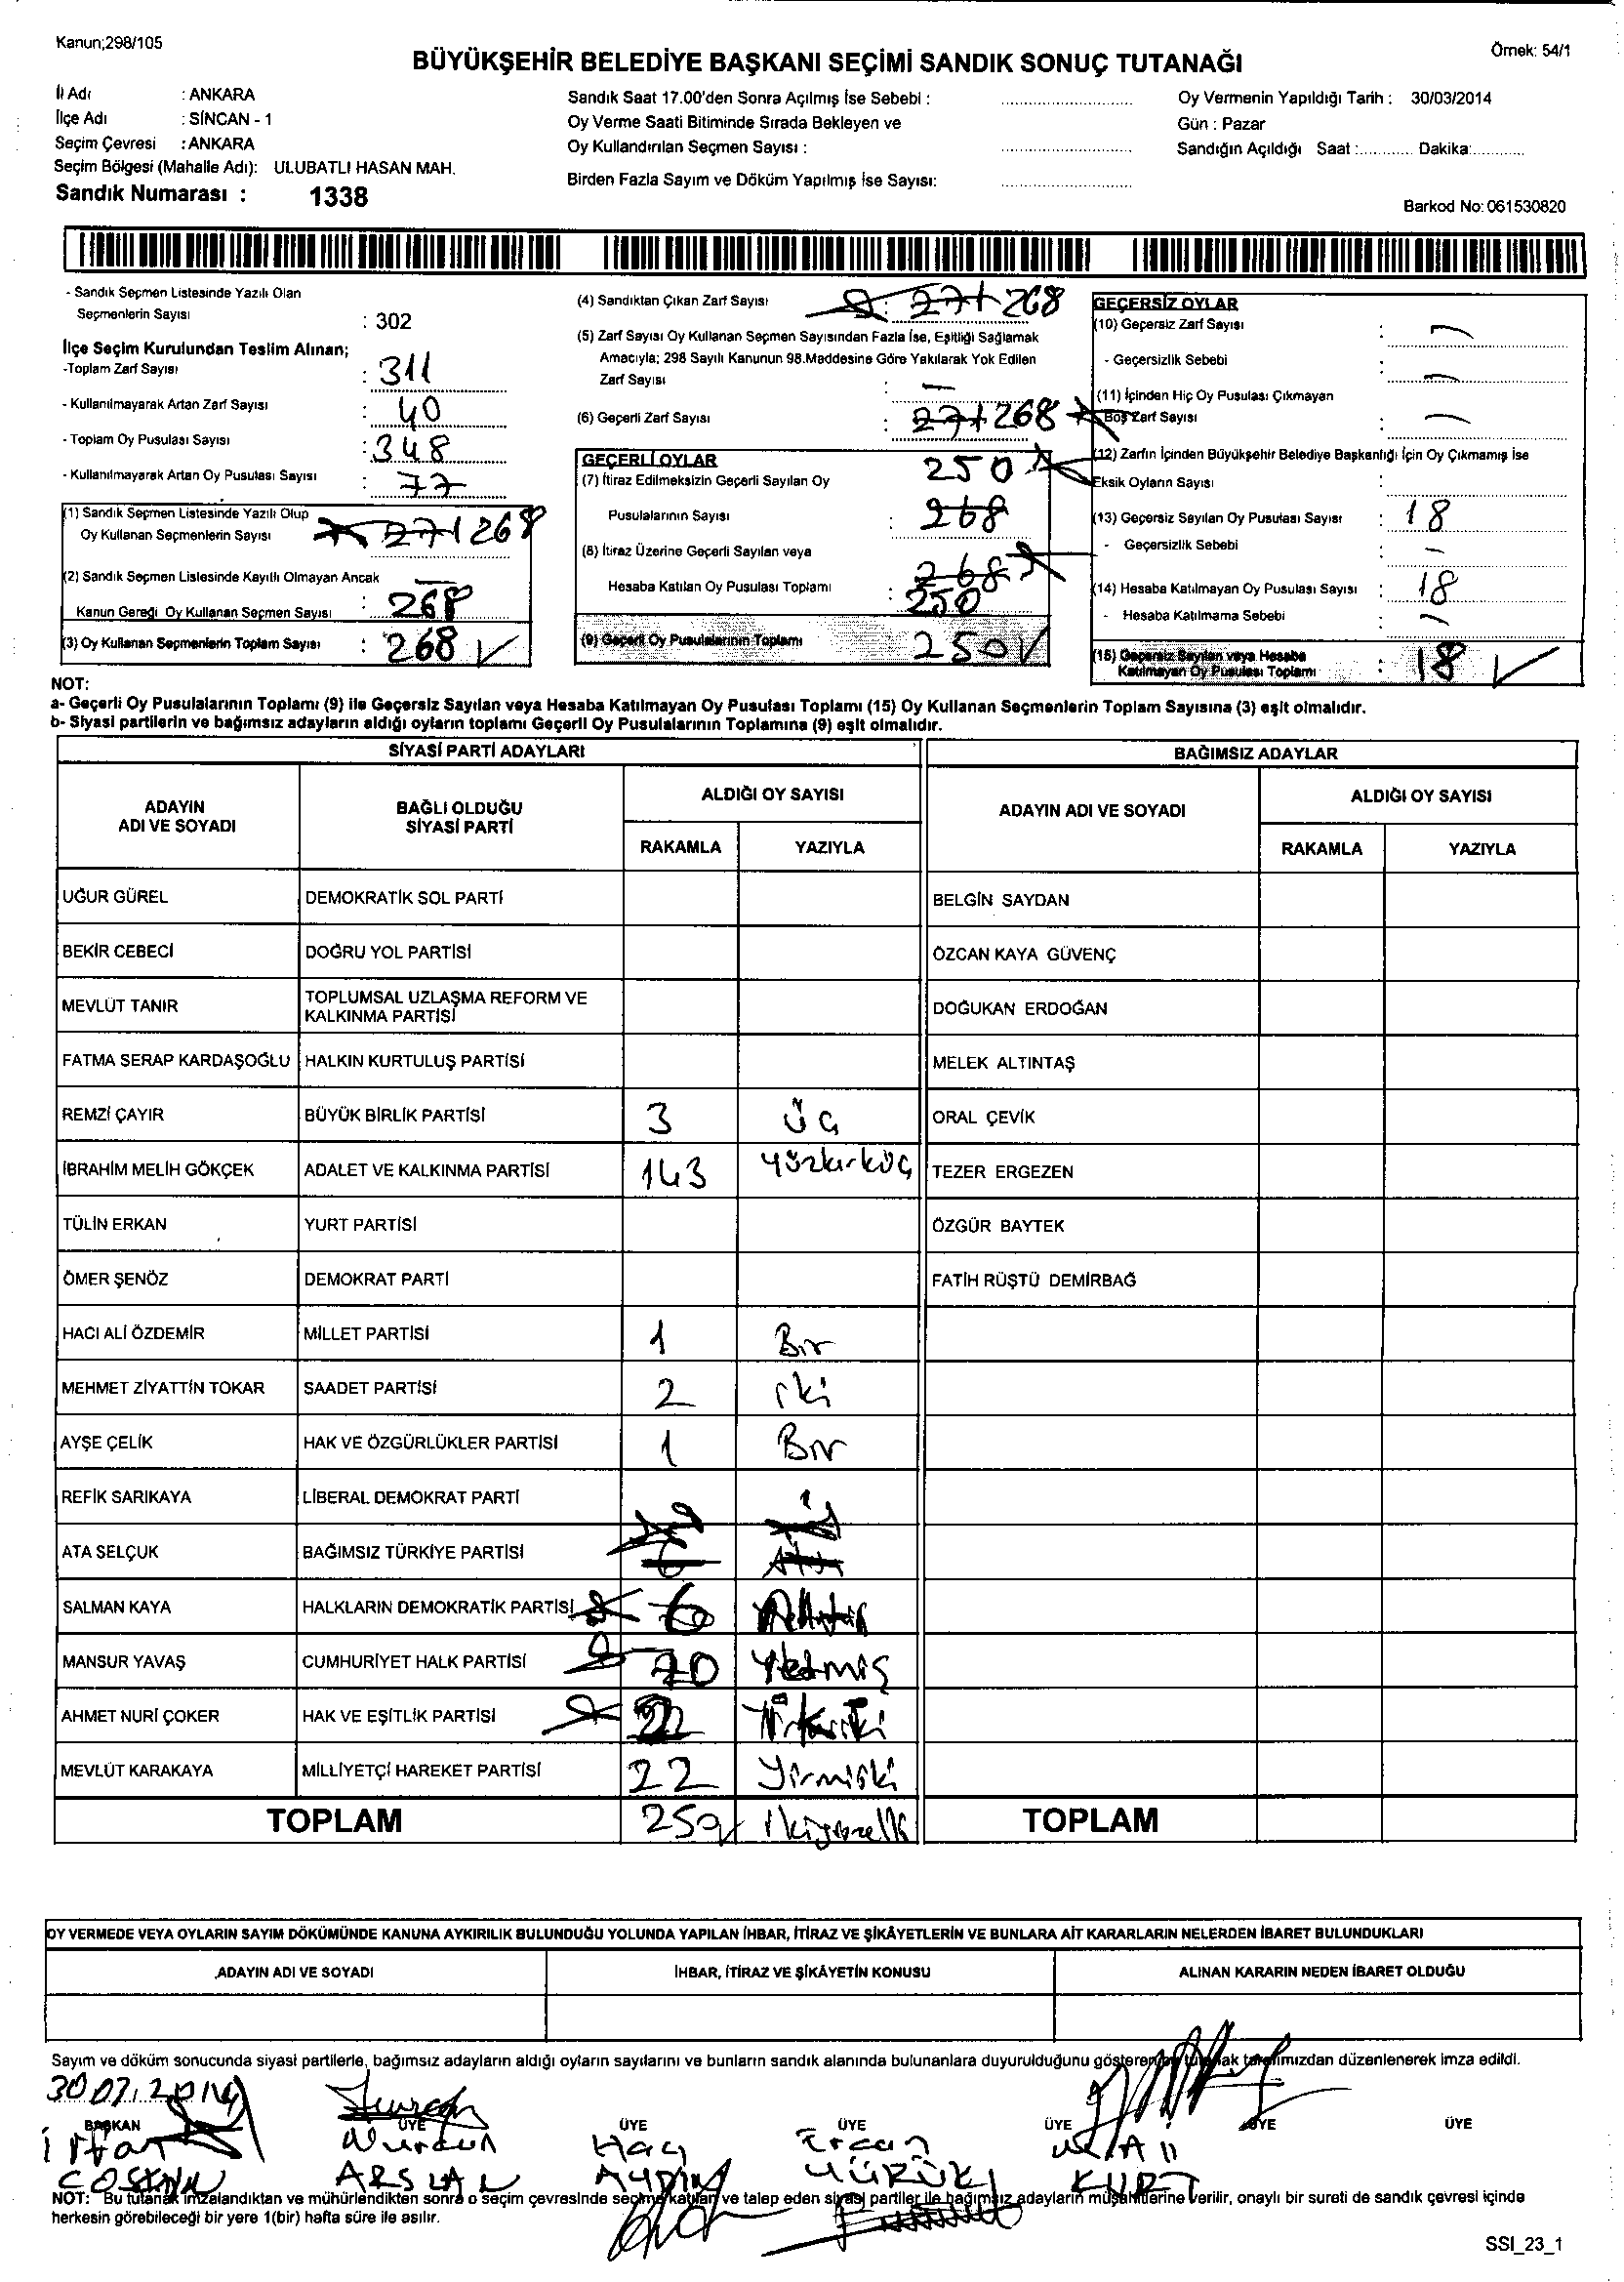 Kanun;298/105
Örnek: 54/1
BÜYÜKŞEHİR BELEDİYE BAŞKANI SEÇİMİ SANDIK SONUÇ TUTANAĞI
İl Adı : ANKARA
İlçe Adı : SİNCAN - 1
Seçim Çevresi : ANKARA
Seçim Bölgesi (Mahalle Adı): ULUBATLI HASAN MAH.
Sandık Numarası : 1338
Sandık Saat 17.00'den Sonra Açılmış İse Sebebi :
Oy Verme Saati Bitiminde Sırada Bekleyen ve
Oy Kullandırılan Seçmen Sayısı :
Birden Fazla Sayım ve Döküm Yapılmış İse Sayısı:
Oy Vermenin Yapıldığı Tarih : 30/03/2014
Gün : Pazar
Sandığın Açıldığı Saat :........... Dakika:...........
Barkod No: 061530820
- Sandık Seçmen Listesinde Yazılı Olan
Seçmenlerin Sayısı : 302
İlçe Seçim Kurulundan Teslim Alınan;
-Toplam Zarf Sayısı : 311
- Kullanılmayarak Artan Zarf Sayısı : 40
- Toplam Oy Pusulası Sayısı : 348
- Kullanılmayarak Artan Oy Pusulası Sayısı : 77
(1) Sandık Seçmen Listesinde Yazılı Olup
Oy Kullanan Seçmenlerin Sayısı 271 268
(2) Sandık Seçmen Listesinde Kayıtlı Olmayan Ancak
Kanun Gereği Oy Kullanan Seçmen Sayısı : 268
(3) Oy Kullanan Seçmenlerin Toplam Sayısı : 268
(4) Sandıktan Çıkan Zarf Sayısı : 271 268
(5) Zarf Sayısı Oy Kullanan Seçmen Sayısından Fazla İse, Eşitliği Sağlamak
Amacıyla; 298 Sayılı Kanunun 98.Maddesine Göre Yakılarak Yok Edilen
Zarf Sayısı : —
(6) Geçerli Zarf Sayısı : 271 268
GEÇERLİ OYLAR
(7) İtiraz Edilmeksizin Geçerli Sayılan Oy 250
Pusulalarının Sayısı : 268
(8) İtiraz Üzerine Geçerli Sayılan veya
Hesaba Katılan Oy Pusulası Toplamı : 268
250
(9) Geçerli Oy Pusulalarının Toplamı 250
GEÇERSİZ OYLAR
(10) Geçersiz Zarf Sayısı : —
- Geçersizlik Sebebi : —
(11) İçinden Hiç Oy Pusulası Çıkmayan
Boş Zarf Sayısı : —
(12) Zarfın İçinden Büyükşehir Belediye Başkanlığı İçin Oy Çıkmamış İse
Eksik Oyların Sayısı :
(13) Geçersiz Sayılan Oy Pusulası Sayısı : 18
- Geçersizlik Sebebi : —
(14) Hesaba Katılmayan Oy Pusulası Sayısı : 18
- Hesaba Katılmama Sebebi : —
(15) Geçersiz Sayılan veya Hesaba
Katılmayan Oy Pusulası Toplamı : 18
NOT:
a- Geçerli Oy Pusulalarının Toplamı (9) ile Geçersiz Sayılan veya Hesaba Katılmayan Oy Pusulası Toplamı (15) Oy Kullanan Seçmenlerin Toplam Sayısına (3) eşit olmalıdır.
b- Siyasi partilerin ve bağımsız adayların aldığı oyların toplamı Geçerli Oy Pusulalarının Toplamına (9) eşit olmalıdır.
SİYASİ PARTİ ADAYLARI
BAĞIMSIZ ADAYLAR
ADAYIN
ADI VE SOYADI
BAĞLI OLDUĞU
SİYASİ PARTİ
ALDIĞI OY SAYISI
RAKAMLA YAZIYLA
ADAYIN ADI VE SOYADI
ALDIĞI OY SAYISI
RAKAMLA YAZIYLA
UĞUR GÜREL DEMOKRATİK SOL PARTİ BELGİN SAYDAN
BEKİR CEBECİ DOĞRU YOL PARTİSİ ÖZCAN KAYA GÜVENÇ
MEVLÜT TANIR TOPLUMSAL UZLAŞMA REFORM VE
KALKINMA PARTİSİ DOĞUKAN ERDOĞAN
FATMA SERAP KARDAŞOĞLU HALKIN KURTULUŞ PARTİSİ MELEK ALTINTAŞ
REMZİ ÇAYIR BÜYÜK BİRLİK PARTİSİ 3 üç ORAL ÇEVİK
İBRAHİM MELİH GÖKÇEK ADALET VE KALKINMA PARTİSİ 143 yüzkırküç TEZER ERGEZEN
TÜLİN ERKAN YURT PARTİSİ ÖZGÜR BAYTEK
ÖMER ŞENÖZ DEMOKRAT PARTİ FATİH RÜŞTÜ DEMİRBAĞ
HACI ALİ ÖZDEMİR MİLLET PARTİSİ 1 Bir
MEHMET ZİYATTİN TOKAR SAADET PARTİSİ 2 iki
AYŞE ÇELİK HAK VE ÖZGÜRLÜKLER PARTİSİ 1 Bir
REFİK SARIKAYA LİBERAL DEMOKRAT PARTİ
ATA SELÇUK BAĞIMSIZ TÜRKİYE PARTİSİ 6 Altı
SALMAN KAYA HALKLARIN DEMOKRATİK PARTİSİ 6
MANSUR YAVAŞ CUMHURİYET HALK PARTİSİ 70 Yetmiş
AHMET NURİ ÇOKER HAK VE EŞİTLİK PARTİSİ
MEVLÜT KARAKAYA MİLLİYETÇİ HAREKET PARTİSİ 22 Yirmiiki
TOPLAM 250 ikiyüzelli TOPLAM
OY VERMEDE VEYA OYLARIN SAYIM DÖKÜMÜNDE KANUNA AYKIRILIK BULUNDUĞU YOLUNDA YAPILAN İHBAR, İTİRAZ VE ŞİKÂYETLERİN VE BUNLARA AİT KARARLARIN NELERDEN İBARET BULUNDUKLARI
ADAYIN ADI VE SOYADI İHBAR, İTİRAZ VE ŞİKÂYETİN KONUSU ALINAN KARARIN NEDEN İBARET OLDUĞU
Sayım ve döküm sonucunda siyasi partilerle, bağımsız adayların aldığı oyların sayılarını ve bunların sandık alanında bulunanlara duyurulduğunu gösteren bu tutanak tarafımızdan düzenlenerek imza edildi.
30.07.2014
BAŞKAN ÜYE ÜYE ÜYE ÜYE ÜYE ÜYE
irfan Nurdun Hacı Ercan Ali
COŞKUN ARSLAN AYDIN YÜRÜK KURT
NOT: Bu tutanak imzalandıktan ve mühürlendikten sonra o seçim çevresinde seçime katılan ve talep eden siyasi partiler ile bağımsız adayların müşahitlerine verilir, onaylı bir sureti de sandık çevresi içinde
herkesin görebileceği bir yere 1(bir) hafta süre ile asılır.
SSI_23_1